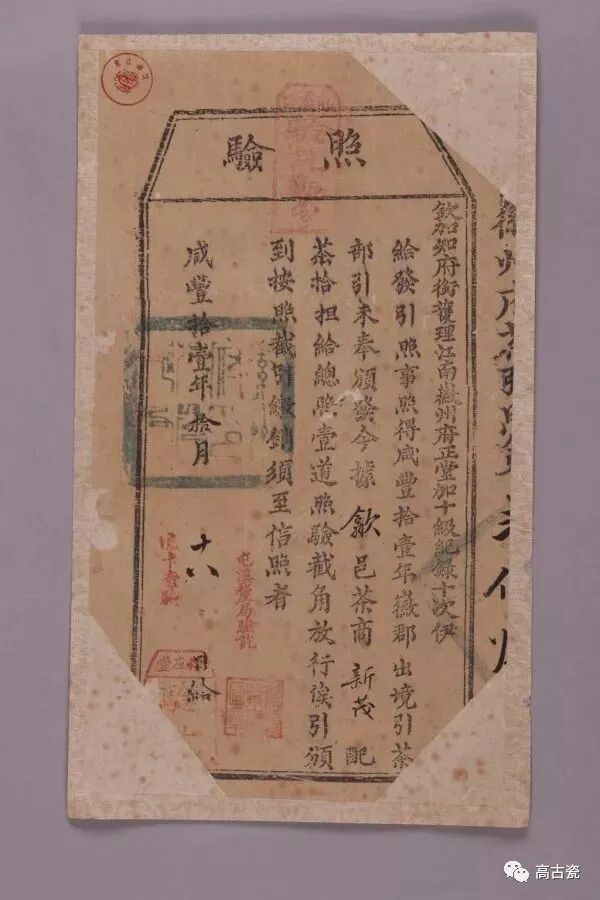 照驗
欽加知府銜護理江南徽州府正堂加十級紀錄十次伊
給發引照事照得咸豐拾壹年徽郡出境引茶
部引未奉頒發今據歙邑茶商新茂配
茶拾担給總照壹道照驗截角放行俟引頒
到按照截引繳銷須至信照者
屯溪釐局驗訖
咸豐拾壹年拾月十八日給
卡查驗
高古瓷